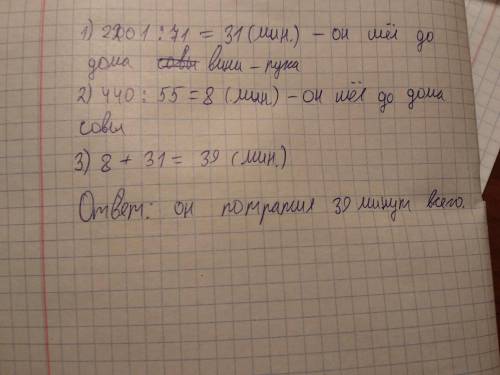 1) 2201 : 71 = 31 (мин.) – он шёл до
дома совы вини – пуха
2) 440 : 55 = 8 (мин) – он шёл до дома
совы
3) 8 + 31 = 39 (мин.)
Ответ: он потратил 39 минут всего.